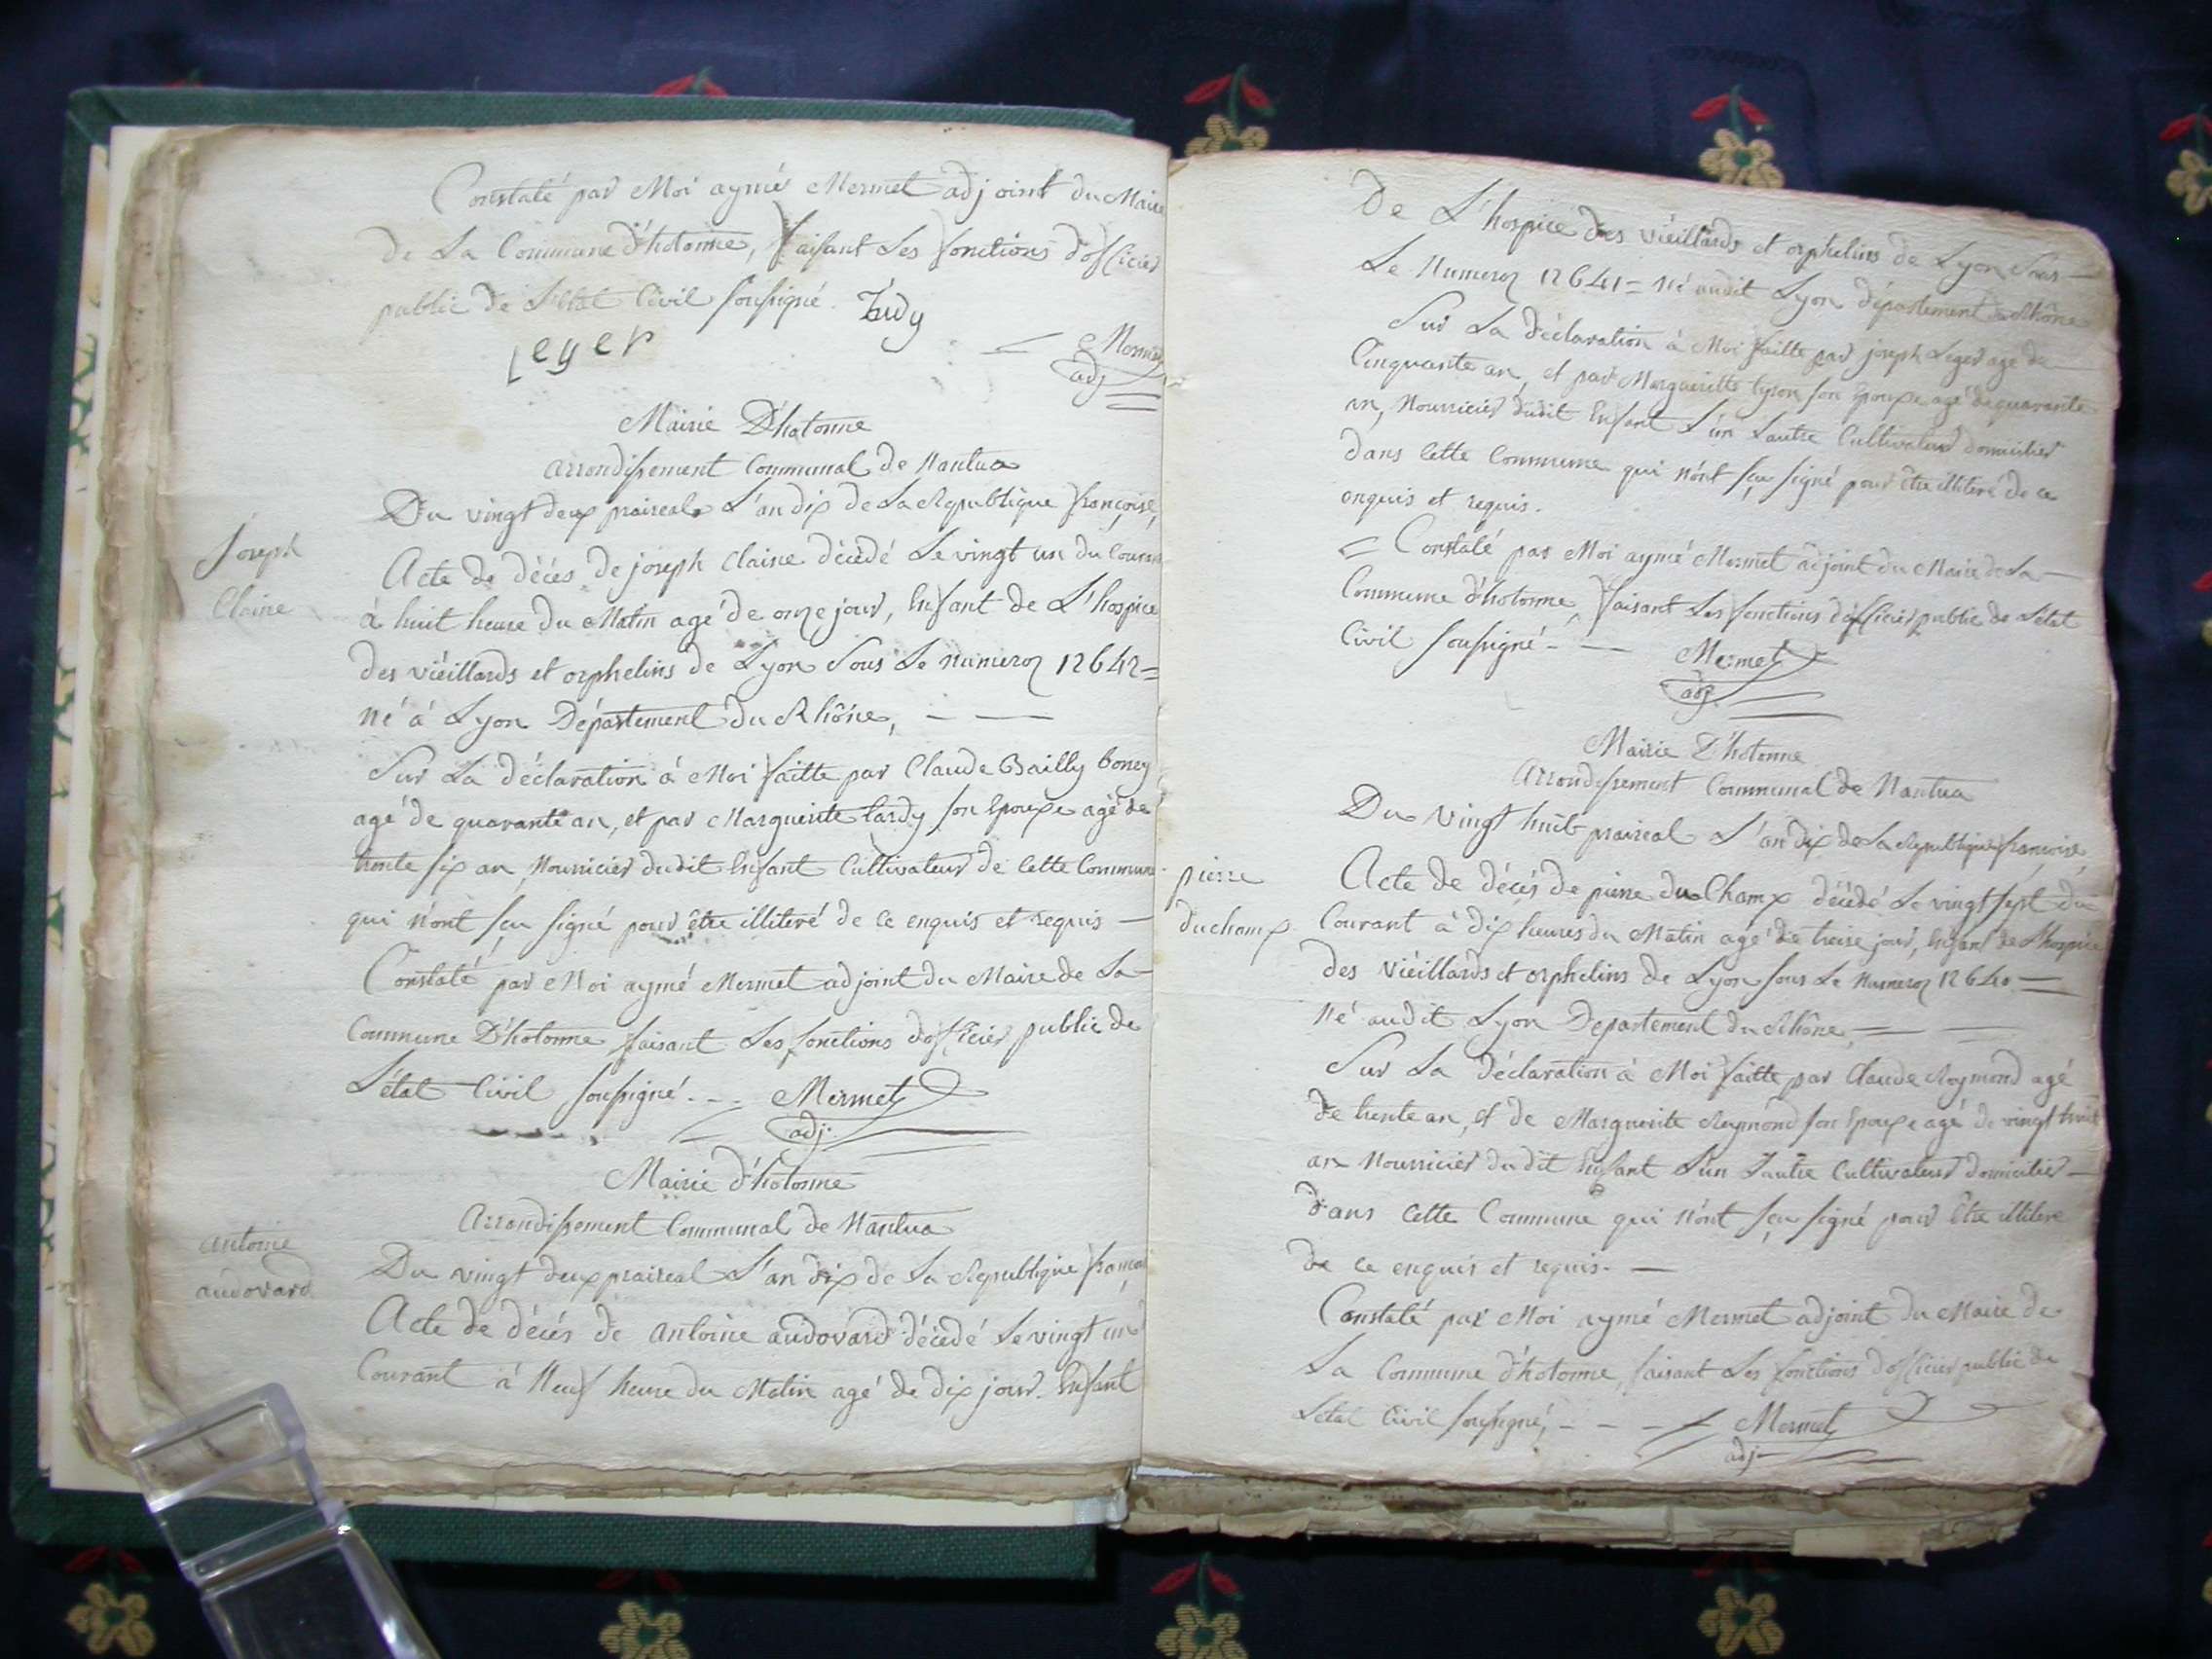 Constaté par Moi aymé Mermet adjoint du Maire
de La Commune d'hotonne, faisant Les fonctions d'officier
public de L'état Civil soussigné.
Leger
Mermet
adj
Mairie D'hotonne
arrondissement Communal de Nantua
Joseph
Claire
Du vingt deux praireal L'an dix de La Republique françoise,
Acte de décés de joseph Claire décédé Le vingt un du Courant
à huit heure du Matin agé de onze jour, Enfant de L'hospice
des viéillards et orphelins de Lyon Sous Le numero 12642=
né à Lyon Département du Rhône, - —
Sur La déclaration à Moi faitte par Claude Bailly boney
agé de quarante an, et par Marguerite tardy son Epouse agé de
trente six an, Nourricier dudit Enfant Cultivateur de Cette Commune
qui n'ont sçu signé pour être illiteré de ce enquis et requis —
Constaté par Moi aymé Mermet adjoint du Maire de La
Commune D'hotonne faisant Les fonctions d'officier public de
L'état Civil soussigné. - - Mermet
adj.
Mairie d'hotonne
Arrondissement Communal de Nantua
antoine
audovard
Du vingt deux praireal L'an dix de La Republique françoise
Acte de décés de antoine audovard décédé Le vingt un
Courant à Neuf heure du Matin agé de dix jour. Enfant
De L'hospice des viéillards et orphelins de Lyon Sous —
Le Numero 12641 = né audit Lyon département du Rhône
Sur La déclaration à Moi faitte par joseph Leger agé de
Cinquante an, et par Margueritte son Epouse agé de quarante
an, Nourricier dudit Enfant L'un Lautre Cultivateur domicilier
dans Cette Commune qui n'ont sçu signé pour être illiteré de ce
enquis et requis.
= Constaté par Moi aymé Mermet adjoint du Maire de La —
Commune d'hotonne, faisant Les fonctions d'officier public de L'état
Civil soussigné - — Mermet
adj.
Mairie D'hotonne
Arrondissement Communal de Nantua
Du vingt huit praireal L'an dix de La Republique françoise,
pierre
duchamp
Acte de décés de pierre du Champ décédé Le vingt sept du
Courant à dix heures du Matin agé de treise jour, Enfant de L'hospice
des viéillards et orphelins de Lyon sous Le Numero 12640 =
né audit Lyon Departement du Rhône, — —
Sur La déclaration à Moi faitte par Claude Reymond agé
de trente an, et de Marguerite Reymond son Epouse agé de vingt huit
an Nourricier dudit Enfant L'un Lautre Cultivateur domicilier —
dans Cette Commune qui n'ont sçu signé pour être illiteré
de ce enquis et requis. —
Constaté par Moi aymé Mermet adjoint du Maire de
La Commune d'hotonne, faisant Les fonctions d'officier public de
L'état Civil soussigné, - - - Mermet
adj